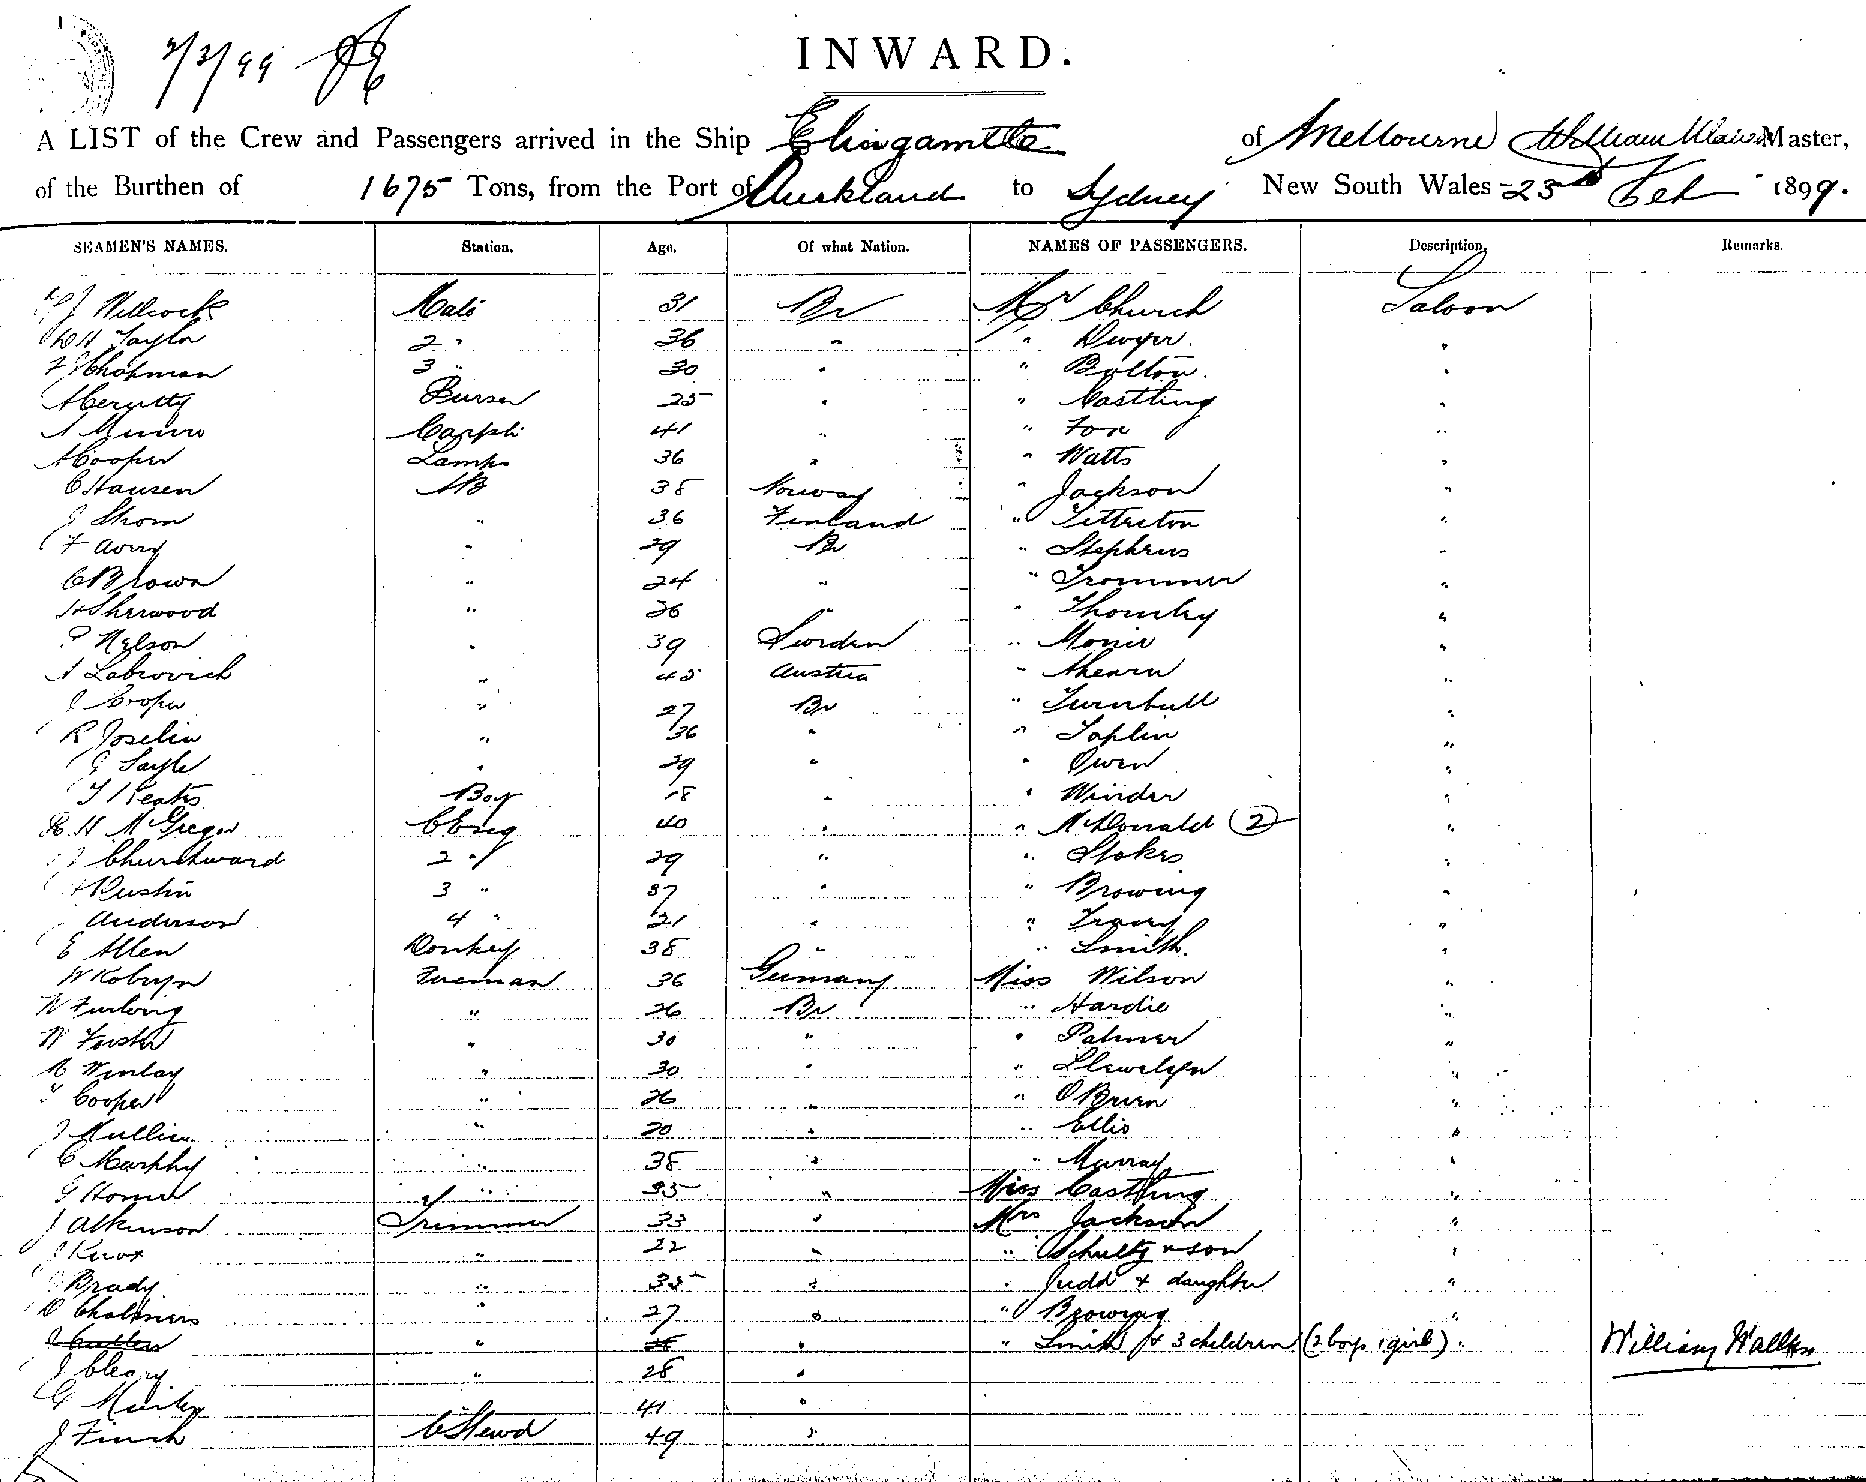 2/3/99
INWARD.
A LIST of the Crew and Passengers arrived in the Ship Elingamite of Melbourne William Master,
of the Burthen of 1675 Tons, from the Port of Auckland to Sydney New South Wales 23rd Feb 1899.
SEAMEN'S NAMES. Station. Age. Of what Nation. NAMES OF PASSENGERS. Description. Remarks.
J Willcock Mate 31 Br Mr Church Saloon
H Taylor 2 " 36 " " Dwyer "
J Chapman 3 " 30 " " Bolton "
A Cerutty Purser 25 " " Castling "
A Munro Carptr 41 " " Fox "
A Cooper Lamps 36 " " Watts "
C Hansen AB 38 Norway " Jackson "
J Strom " 36 Finland " Titterton "
F Avery " 29 Br " Stephens "
C Brown " 24 " " Trommer "
H Sherwood " 26 " " "
P Nelson " 39 Sweden " "
A Labrovich " 45 Austria " Ahearn "
J Cooper " 27 Br " Turnbull "
R Joselin " 36 " " Taplin "
G Sayle " 29 " " Owen "
T Keats Boy 18 " " Winder "
R H McGregor C Eng 40 " " McDonald (2) "
J Churchward 2 " 29 " " Stokes "
H Rustin 3 " 37 " " Browing "
Anderson 4 " 21 " " Tracey "
E Allen Donkey 38 " " Smith "
W Kobryn Fireman 36 Germany Miss Wilson "
W Furlong " 26 Br " Hardie "
W Forster " 30 " " Palmer "
Winlay " 30 " " Llewelyn "
Cooper " 26 " " O'Brien "
J Mullin " 30 " " Ellis "
C Murphy " 38 " " Murray "
G Homer " 35 " Miss Castling "
J Atkinson Trimmer 33 " Mrs Jackson "
J Knox " 22 " " Schultz & son "
Brady " 35 " " Judd & daughter "
D Chalmers " 27 " " Browing "
J Cutler " " " Smith & 3 children (2 boys 1 girl) William Wallen
J Cleary " 28 "
C 41 "
J Finch C Stewd 49 "